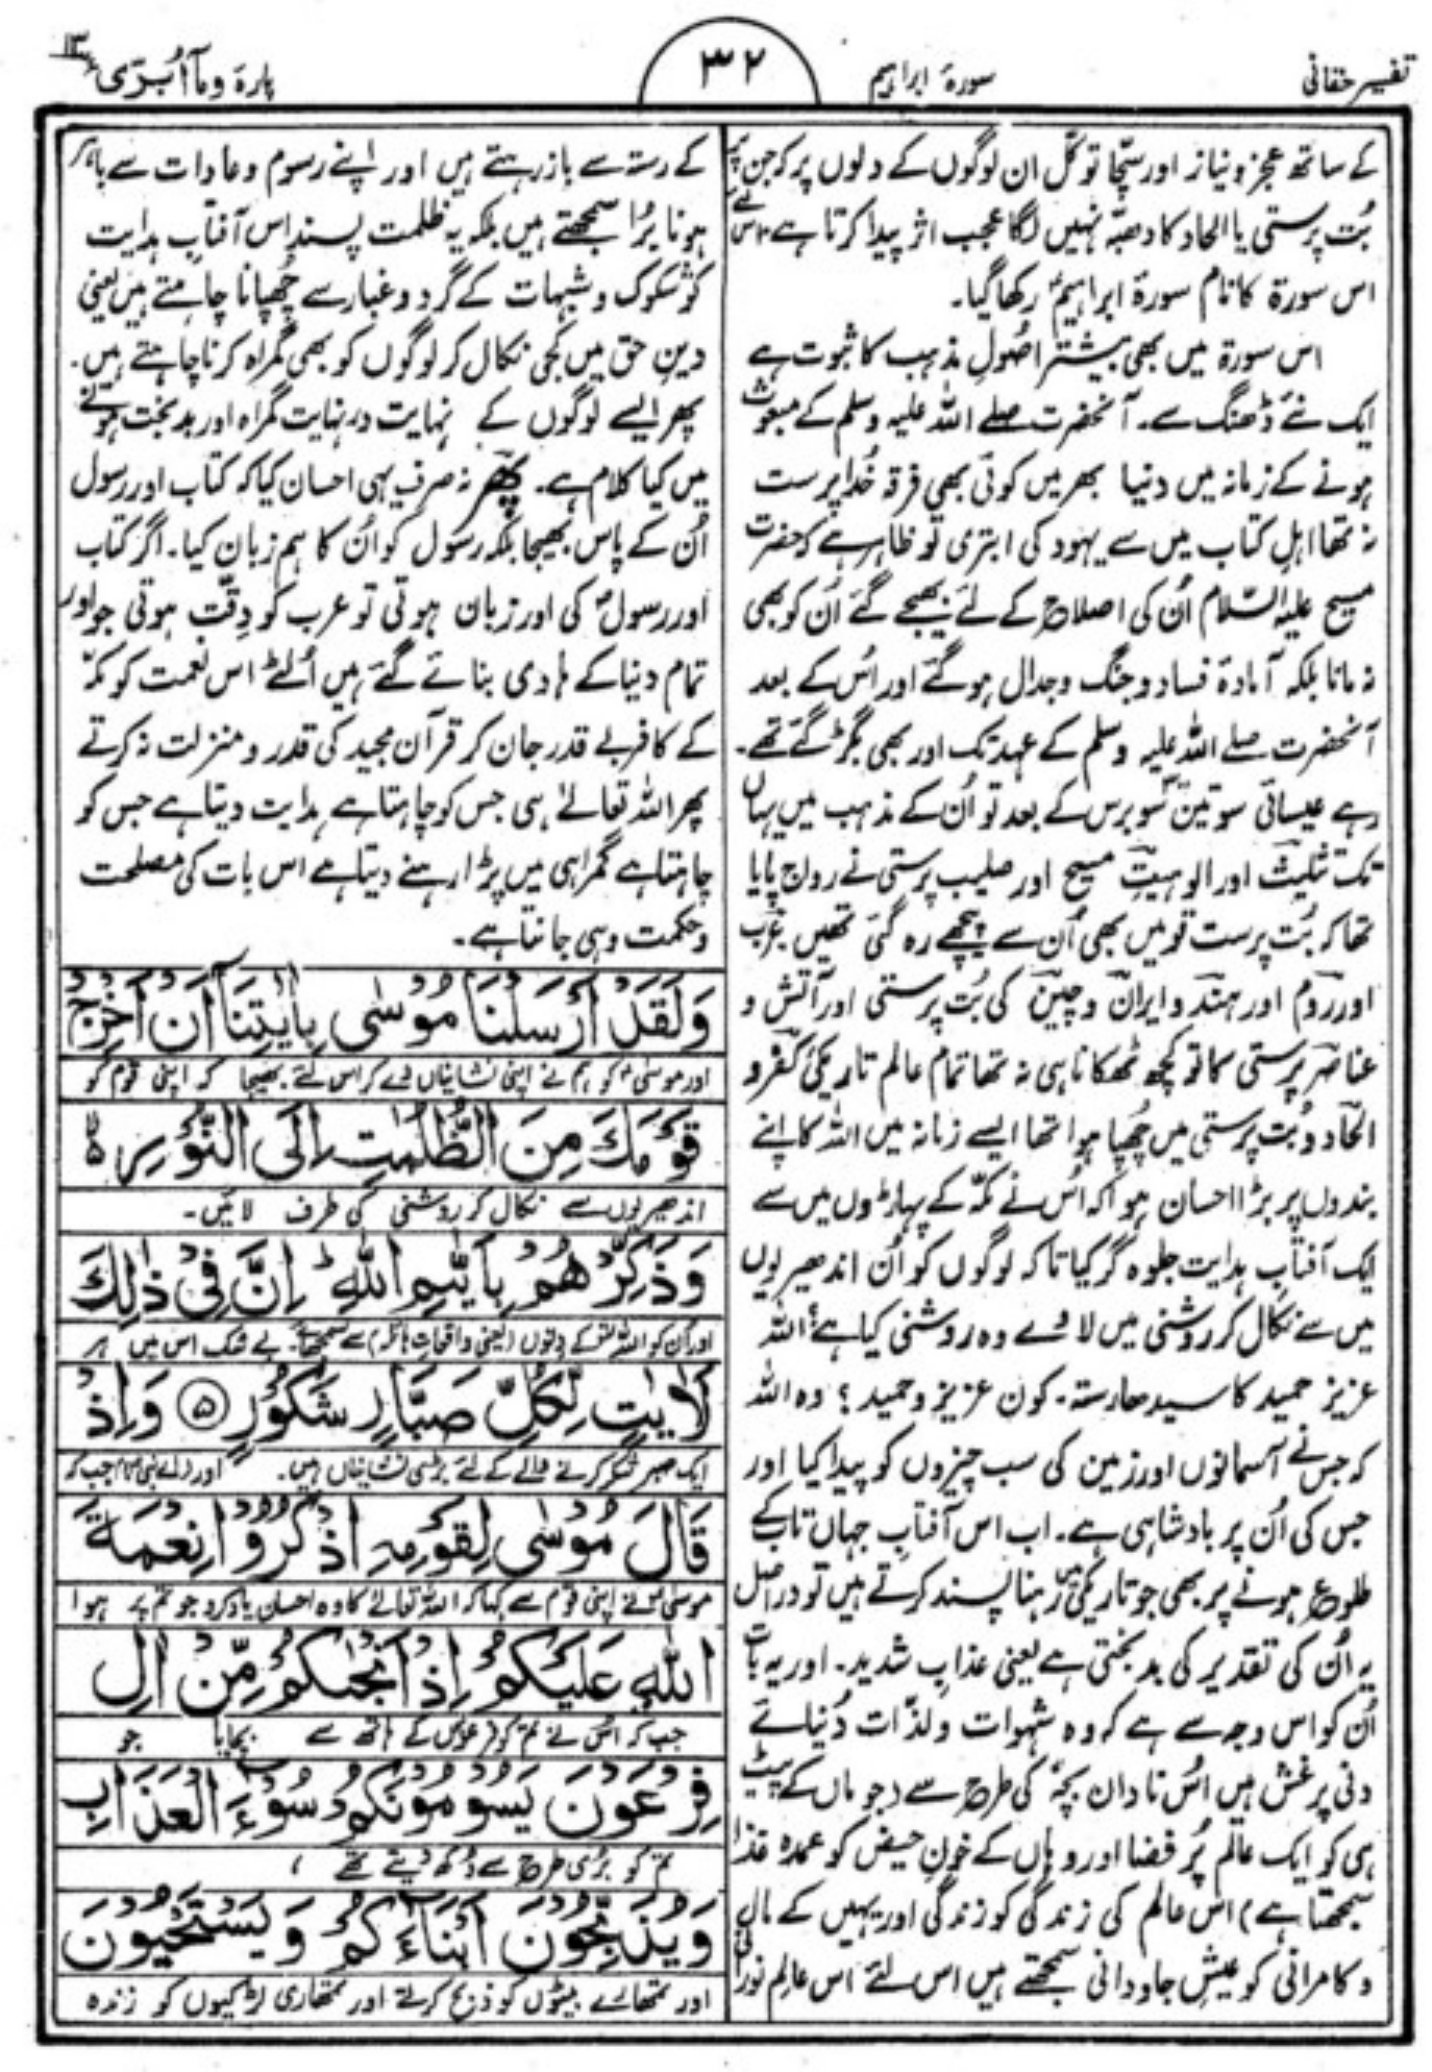 تفسیر حقانی
سورۂ ابراہیم
۳۲
پارہ وماۤ اُبَرِّئُ ۱۳
کے ساتھ عجز و نیاز اور سچّا توکل ان لوگوں کے دلوں پر کہ جن پر
بُت پرستی یا الحاد کا دھبّہ نہیں لگا عجب اثر پیدا کرتا ہے اس لئے
اس سورۃ کا نام سورۃ ابراہیمؑ رکھا گیا۔
اس سورۃ میں بھی بیشتر اصُولِ مذہب کا ثبوت ہے
ایک نئے ڈھنگ سے۔ آنحضرت صلے اللہ علیہ وسلم کے مبعوث
ہونے کے زمانہ میں دنیا بھر میں کوئی بھی فرقہ خُدا پرست
نہ تھا اہلِ کتاب میں سے یہود کی ابتری تو ظاہر ہے کہ حضرت
مسیح علیہ السّلام اُن کی اصلاح کے لئے بھیجے گئے اُن کو بھی
نہ مانا بلکہ آمادۂ فساد و جنگ و جدال ہو گئے اور اُس کے بعد
آنحضرت صلے اللہ علیہ وسلم کے عہد تک اور بھی بگڑ گئے تھے۔
رہے عیسائی سو تین سو برس کے بعد تو اُن کے مذہب میں یہاں
تک تثلیث اور الوہیتِ مسیح اور صلیب پرستی نے رواج پایا
تھا کہ بُت پرست قومیں بھی اُن سے پیچھے رہ گئی تھیں عرب
اور روم اور ہند و ایران و چین کی بُت پرستی اور آتش و
عناصر پرستی کا تو کچھ ٹھکانا ہی نہ تھا تمام عالم تاریکیٔ کفر و
الحاد و بُت پرستی میں چُھپا ہوا تھا ایسے زمانہ میں اللہ کا اپنے
بندوں پر بڑا احسان ہوا کہ اُس نے مکّہ کے پہاڑوں میں سے
ایک آفتابِ ہدایت جلوہ گر کیا تاکہ لوگوں کو اُن اندھیریوں
میں سے نکال کر روشنی میں لاوے وہ روشنی کیا ہے؟ اللہ
عزیز حمید کا سیدھا رستہ۔ کون عزیز و حمید؟ وہ اللہ
کہ جس نے آسمانوں اور زمین کی سب چیزوں کو پیدا کیا اور
جس کی اُن پر بادشاہی ہے۔ اب اس آفتابِ جہاں تاب کے
طلوع ہونے پر بھی جو تاریکی میں رہنا پسند کرتے ہیں تو دراصل
یہ اُن کی تقدیر کی بدبختی ہے یعنی عذابِ شدید۔ اور یہ بات
اُن کو اس وجہ سے ہے کہ وہ شہوات و لذّات دُنیائے
دنی پر غش ہیں اُس نادان بچّہ کی طرح سے (جو ماں کے پیٹ
ہی کو ایک عالم پُر فضا اور وہاں کے خونِ حیض کو عمدہ غذا
سمجھتا ہے) اس عالم کی زندگی کو زندگی اور یہیں کے مال
و کامرانی کو عیشِ جاودانی سمجھتے ہیں اس لئے اس عالمِ نورانی
کے رستہ سے باز رہتے ہیں اور اپنے رسوم و عادات سے باہر
ہونا بُرا سمجھتے ہیں بلکہ یہ ظلمت پسند اس آفتابِ ہدایت
کو شکوک و شبہات کے گرد و غبار سے چُھپانا چاہتے ہیں یعنی
دینِ حق میں کجی نکال کر لوگوں کو بھی گمراہ کرنا چاہتے ہیں۔
پھر ایسے لوگوں کے نہایت در نہایت گمراہ اور بدبخت ہونے
میں کیا کلام ہے۔ پھر نہ صرف یہی احسان کیا کہ کتاب اور رسول
اُن کے پاس بھیجا بلکہ رسول کو اُن کا ہم زبان کیا۔ اگر کتاب
اور رسولؐ کی اور زبان ہوتی تو عرب کو دِقّت ہوتی جو اور
تمام دنیا کے ہادی بنائے گئے ہیں اُلٹے اس نعمت کو مکّہ
کے کافر بے قدر جان کر قرآن مجید کی قدر و منزلت نہ کرتے
پھر اللہ تعالےٰ ہی جس کو چاہتا ہے ہدایت دیتا ہے جس کو
چاہتا ہے گمراہی میں پڑا رہنے دیتا ہے اس بات کی مصلحت
و حکمت وہی جانتا ہے۔
وَلَقَدْ اَرْسَلْنَا مُوْسٰی بِاٰیٰتِنَاۤ اَنْ اَخْرِجْ
اور موسیٰؑ کو ہم نے اپنی نشانیاں دے کر اس لئے بھیجا کہ اپنی قوم کو
قَوْمَكَ مِنَ الظُّلُمٰتِ اِلَی النُّوْرِ ۙ
اندھیریوں سے نکال کر روشنی کی طرف لائیں۔
وَذَكِّرْهُمْ بِاَیّٰىمِ اللّٰهِ ؕ اِنَّ فِیْ ذٰلِكَ
اور اُن کو اللہ کے دنوں (یعنی واقعات) سے سمجھا۔ بے شک اس میں ہر
لَاٰیٰتٍ لِّكُلِّ صَبَّارٍ شَكُوْرٍ ۝۵ وَاِذْ
ایک صبر شکر کرنے والے کے لئے بڑی نشانیاں ہیں۔ اور (اے نبی) جب کہ
قَالَ مُوْسٰی لِقَوْمِهِ اذْكُرُوْا نِعْمَةَ
موسیٰؑ نے اپنی قوم سے کہا کہ اللہ تعالےٰ کا وہ احسان یاد کرو جو تم پر ہوا
اللّٰهِ عَلَیْكُمْ اِذْ اَنْجٰىكُمْ مِّنْ اٰلِ
جب کہ اُس نے تم کو فرعون کے ہاتھ سے بچایا جو
فِرْعَوْنَ یَسُوْمُوْنَكُمْ سُوْٓءَ الْعَذَابِ
تم کو بُری طرح سے دُکھ دیتے تھے
وَیُذَبِّحُوْنَ اَبْنَآءَكُمْ وَیَسْتَحْیُوْنَ
اور تمھارے بیٹوں کو ذبح کرتے اور تمھاری لڑکیوں کو زندہ